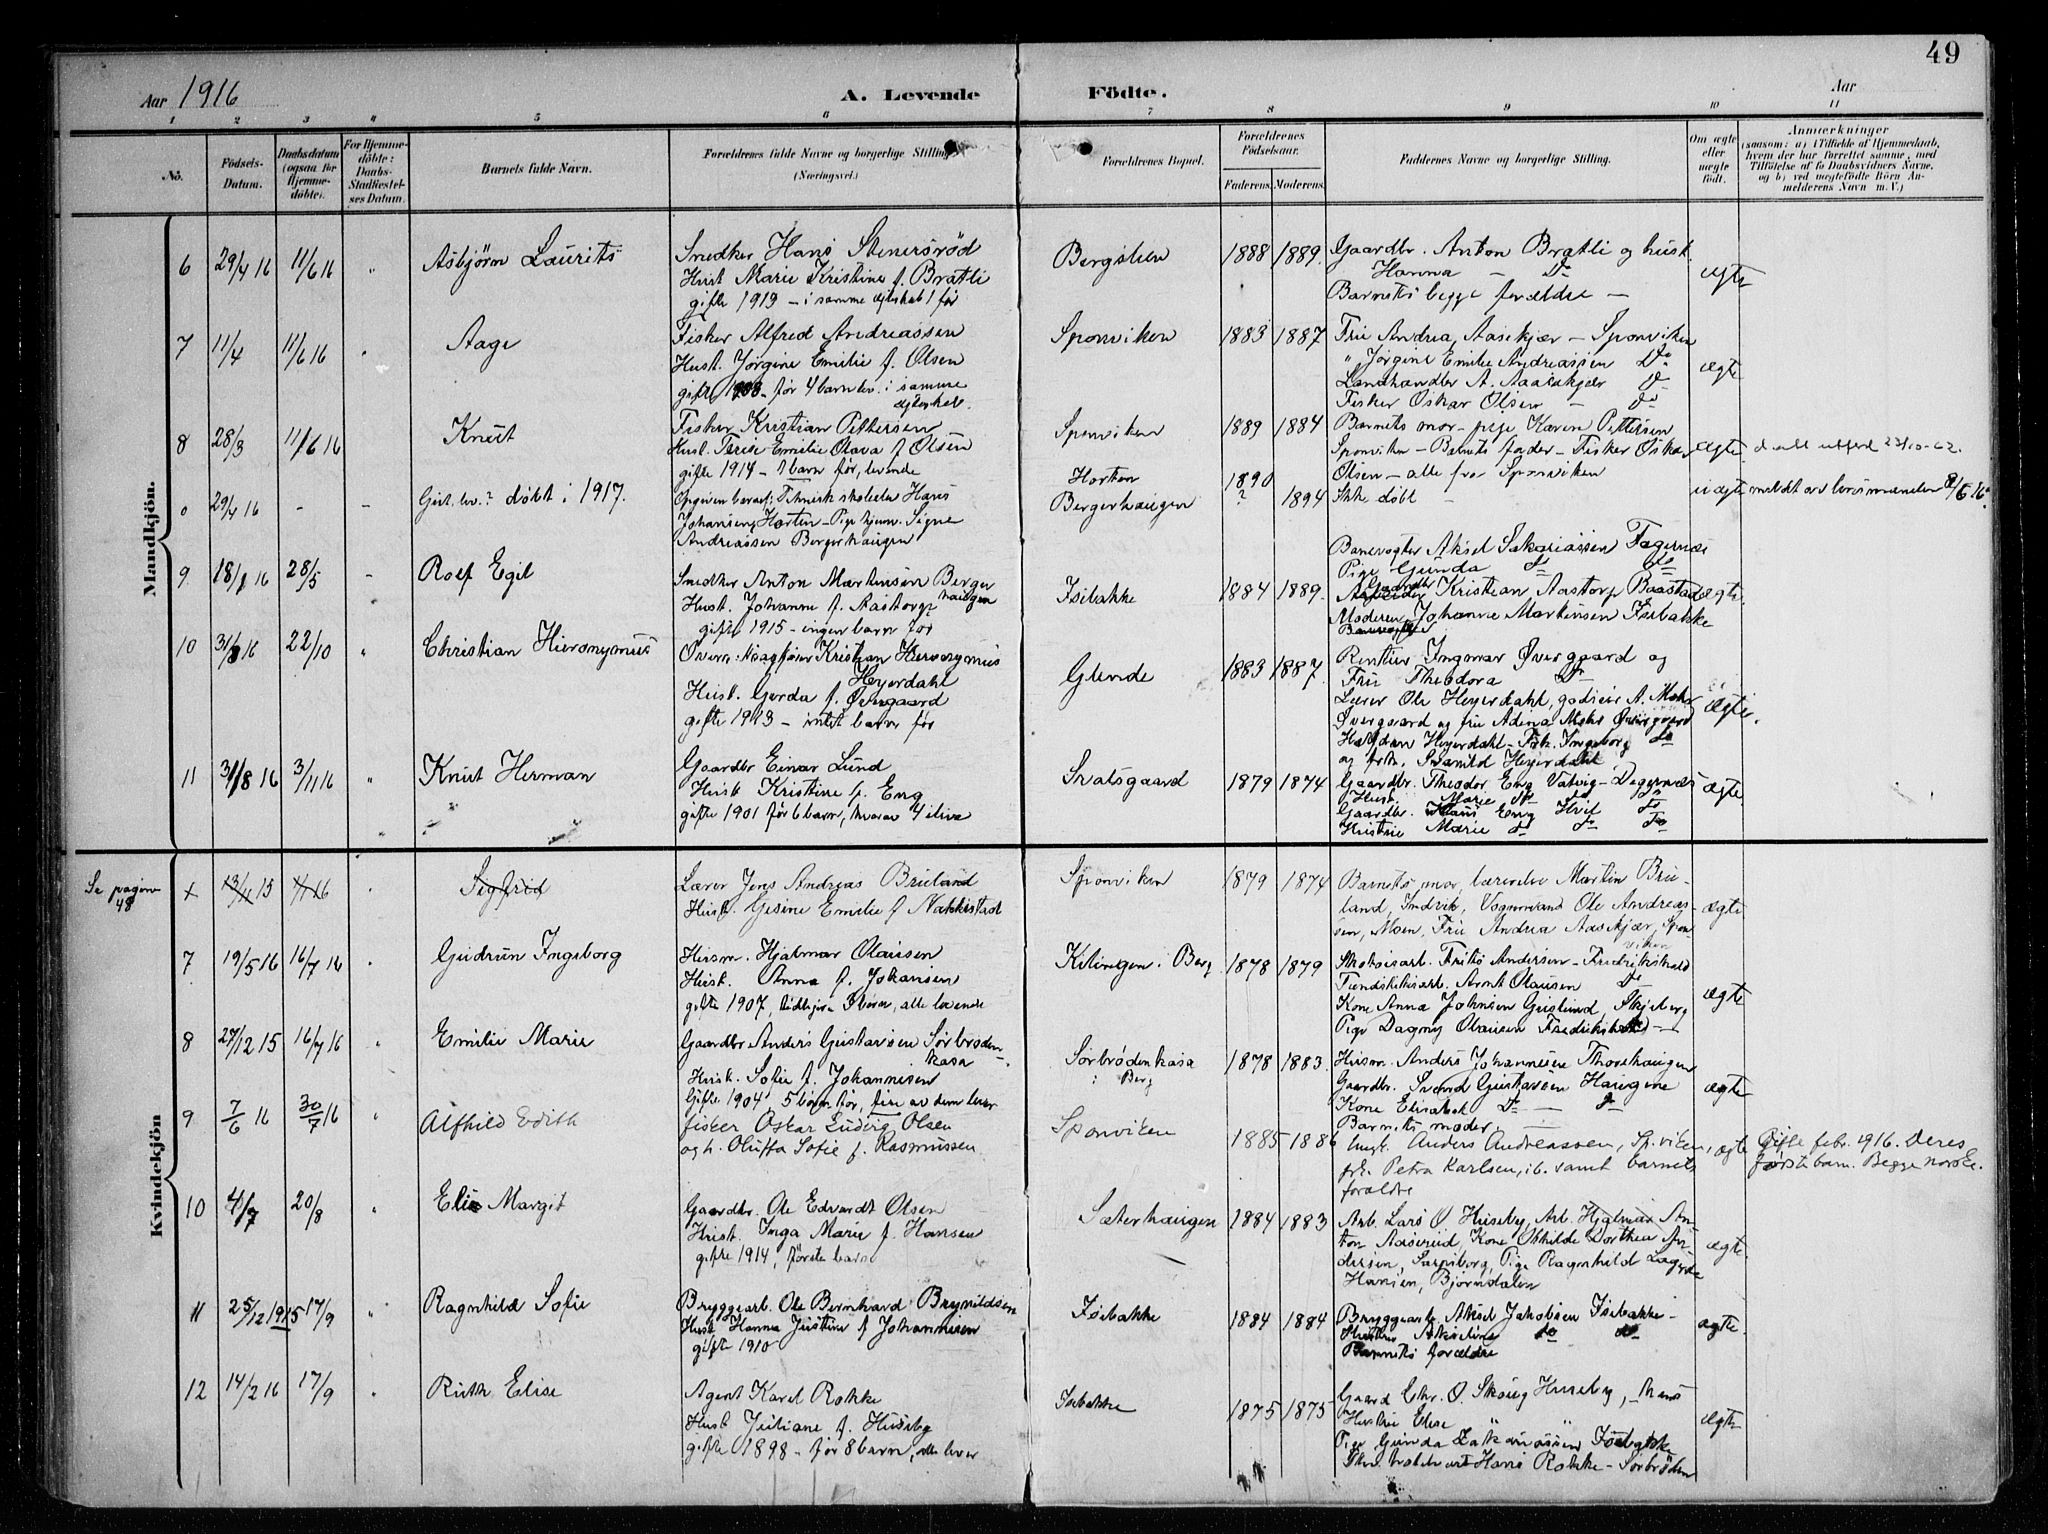 49
Aar 1916
A. Levende Fødte.
Aar
1 2 3 4 5 6 7 8 9 10 11
No.
Födsels-Datum.
Daabsdatum (ogsaa for Hjemmedöbte).
For Hjemmedöbte: Daabs-Stadfæstelses Datum.
Barnets fulde Navn.
Forældrenes fulde Navne og borgerlige Stilling (Næringsvei.)
Forældrenes Bopæl.
Forældrenes Födselsaar.
Faderens. Moderens.
Faddernes Navne og borgerlige Stilling.
Om ægte eller uægte födt.
Anmærkninger
(saasom: a) i Tilfælde af Hjemmedaab, hvem der har forrettet samme, med Tilföielse af to Daabsvidners Navne, og b) ved uægtefödte Börn Anmelderens Navn m. V.)
Mandkjön.
6 29/4 16 11/6 16 " Asbjörn Laurits
Snedker Hans Stenersrød
Hust. Marie Kristine f. Bratli
gifte 1913 – i samme ægteskab 1 før
Bergslien 1888 1889
Gaardbr. Anton Bratli og hust.
Hanna – Do
Barnets begge forældre –
ægte
7 11/4 11/6 16 " Aage
Fisker Alfred Andreassen
Hust. Jörgine Emilie f. Olsen
gifte 1908 – før 4 barn lev. i samme
ægteskab.
Sponviken 1883 1887
Fru Andrea Aasekjær – Sponviken
" Jörgine Emilie Andreassen Do
Landhandler A. Aasekjær Do
Fisker Oskar Olsen – Do
ægte
8 28/3 11/6 16 Knut
Fisker Kristian Pettersen
Hust. Terese Emilie Olava f. Olsen
gifte 1914 – 1 barn før, levende
Sponviken 1889 1884
Barnets mor – pige Karen Pettersen
Sponviken – Barnets fader – Fisker Oskar
Olsen – alle fra Sponviken
ægte
d. att. utferd 23/10-62.
0 29/4 16 – – Gust. lev.? döbt i 1917.
Opgiven barnef.: Teknisk skoleelev Hans
Johansen, Horten – Pige hjem. Signe
Andreassen Bergerhaugen
Horten 1890
Bergerhaugen ? 1894
Ikke döbt –
uægte
meldt av lensmanden 8/5 16.
9 18/1 16 28/5 – Rolf Egil
Snedker Anton Martinsen Berger
haugen
Hust. Johanne f. Aastorp
gifte 1915 – ingen barn før
Isebakke 1884 1889.
Banevogter Aksel Sakariassen Fagernæs
Pige Gunda do do
Gaardbr Kristian Aastorp Baastad
Moderen Johanne Martinsen Isebakke
ægte.
10 31/8 16 22/10 " Christian Hieronymus
Overr: sagfører Kristian Hieronymus
Heyerdahl
Hust. Gerda f. Øvergaard
gifte 1913 – intet barn før
Glende 1883 1887
Rentier Ingmar Øvergaard og
Fru Theodora Do
Lærer Ole Heyerdahl, godseier A. Mohr
Øvergaard og fru Adina Mohr Øvergaard
Halfdan Heyerdahl – Frk. Ingeborg do
og frk. Svanild Heyerdahl
ægte.
11 31/8 16 3/11 16 " Knut Herman
Gaardbr Einar Lund
Hust. Kristine f. Eng
gifte 1901 før 6 barn, hvorav 4 i live
Svalsgaard 1879 1874
Gaardbr. Theodor Eng Vatvig – Degernæs
Hust. Marie do do do
Gaardbr. Hans Eng Hvit do
Hustrue Marie do do do
ægte
Kvindekjön
Se pagina 48
x 13/11 15 1/1 16 " Sigfrid
Lærer Jens Andreas Brieland
Hust. Gesine Emilie f. Nakkestad
Sponviken 1879 1874
Barnets mor, lærerelev Martin Brie-
land, Indvik, Vognmand Ole Andreas-
sen, Moen, Fru Andrea Aasekjær, Spon-
viken
ægte
7 19/5 16 16/7 16 " Gudrun Ingeborg
Husm. Hjalmar Olausen
Hust. Anna f. Johansen
gifte 1907, tidligere 3 barn, alle levende
Kilengen i Berg 1878 1879
Skotøiarb. Frits Andersen – Fredrikshald
Fændstikarb. Arnt Olausen Do
Kone Anna Johnsen Gruslund, Skjeberg
Pige Dagny Olausen Fredrikshald –
ægte
8 27/12 15 16/7 16 " Emilie Marie
Gaardbr Anders Gustavsen Sørbrøden-
kasa
Hust. Sofie f. Johannesen
Gifte 1904 5 barn før, fire av dem lever
Sørbrødenkasa
i Berg
1878 1883
Husm. Anders Johannesen Thorehaugen
Gaardbr. Svend Gustavsen Haugene
Kone Elisabet Do – Do
Barnets moder.
ægte
9 7/6 16 30/7 16 " Alfhild Edith
fisker Oskar Ludvig Olsen
og h. Oluffa Sofie f. Rasmussen
Sponviken 1885 1886
Ungk. Anders Andreassen, Sp.viken,
frk. Petra Karlsen, ib. samt barnets
forældre
ægte
Gifte febr. 1916. Deres
første barn. Begge norske.
10 4/7 20/8 " Elie Margit
Gaardbr. Ole Edvardt Olsen
Hust. Inga Marie f. Hansen
gifte 1914, første barn
Sæterhaugen 1884 1883
Arb. Lars O. Huseby, Arb. Hjalmar An-
ton Aaserud, Kone Othilde Dorthea An-
dersen, Sarpsborg, Pige Ragnhild Lagerta
Hansen, Bjørndalen
ægte
11 25/12 1915 17/9 " Ragnhild Sofie
Bryggearb. Ole Bernhard Brynildsen
Hust Hanna Justine f. Johannesen
gifte 1910
Isebakke 1884 1884
Bryggearb Aksel Jakobsen Isebakke –
Hustru Akseline do do
Barnets forældre
ægte.
12 14/2 16 17/9 " Ruth Elise
Agent Karel Rokke
Hust Juliane f. Huseby
gifte 1898 – før 8 barn, alle lever
Isebakke 1875 1875
Gaardbr Chr. O. Skaug Huseby, – hans
Hustrue Elise " "
Pige Gunda Zakariassen Isebakke
Hans Rokke – Sørbrøden
ægte